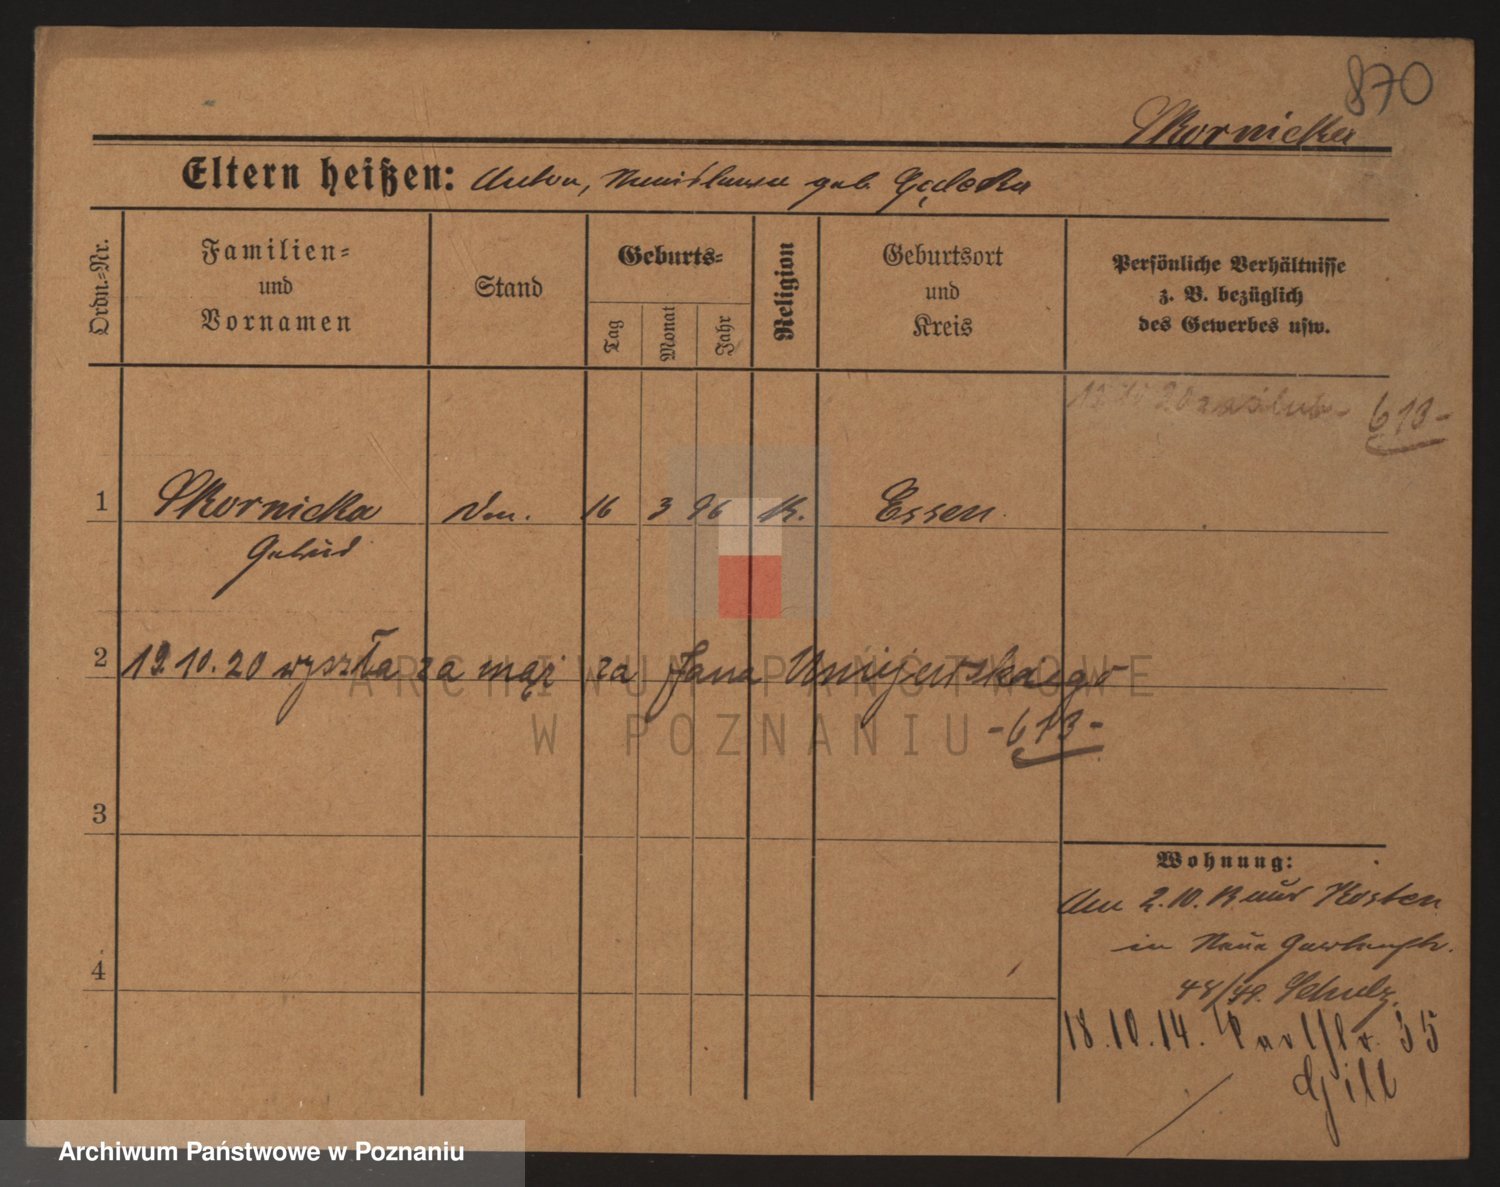 870
Skornicka
Eltern heißen: Anton, Stanislawa geb.
Ordn.-Nr.
Familien-
und
Vornamen
Stand
Geburts-
Tag
Monat
Jahr
Religion
Geburtsort
und
Kreis
Persönliche Verhältnisse
z. B. bezüglich
des Gewerbes usw.
20 zaślub. 613-
1 Skornicka 16 3 96 K. Essen
2 19.10.20 wyszła za mąż za Jana
-613-
3
4
Wohnung:
Am 2.10.13 aus Kosten
in Neue Gartenstr.
48/49. Schulz.
18.10.14. 35
Gill
ARCHIWUM PAŃSTWOWE
W POZNANIU
Archiwum Państwowe w Poznaniu